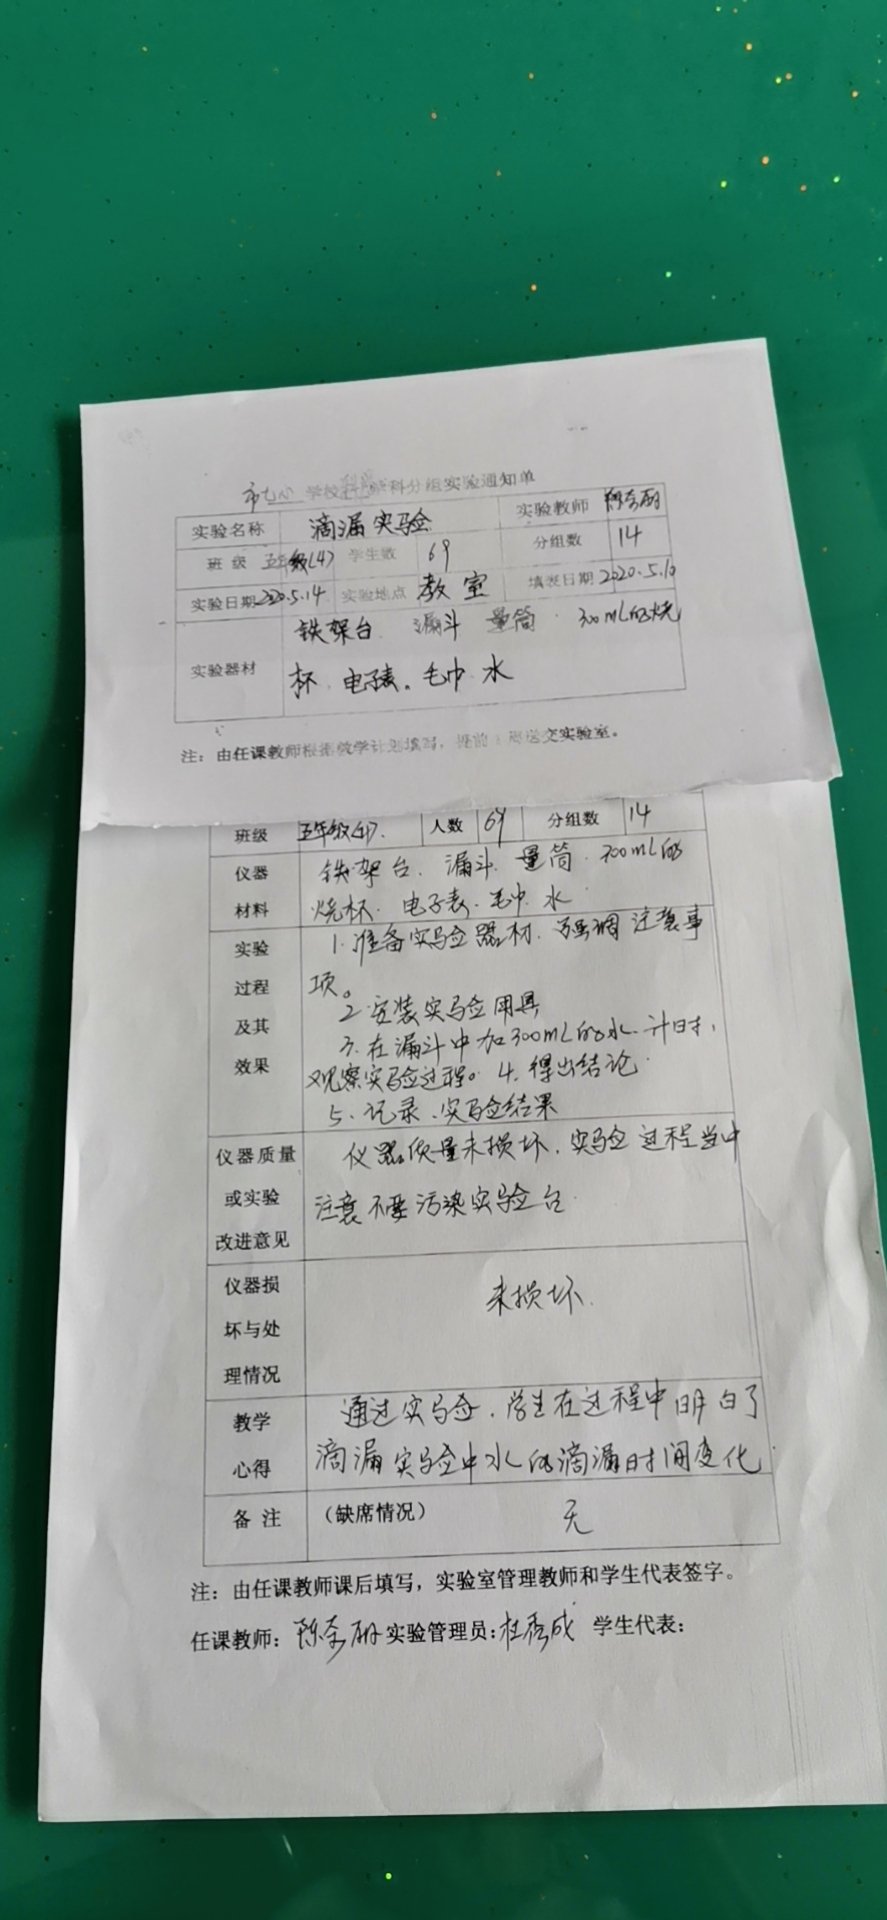 学校 科分组实验通知单
实验名称 滴漏实验 实验教师
班 级 五年级(4) 学生数 69 分组数 14
实验日期 2020.5.14 实验地点 教室 填表日期 2020.5.10
实验器材 铁架台 漏斗 量筒 300mL的烧
杯 电子表。毛巾 水
注：由任课教师根据教学计划填写，提前 周送交实验室。
班级 五年级(4). 人数 69 分组数 14
仪器 铁架台. 漏斗. 量筒. 300mL的
材料 烧杯. 电子表. 毛巾. 水
实验 1. 准备实验器材. 强调注意事
过程 项。
2 安装实验用具
及其 3. 在漏斗中加300mL的水. 计时,
效果 观察实验过程。4. 得出结论.
5. 记录.实验结果
仪器质量 仪器质量未损坏. 实验过程当中
或实验 注意不要污染实验台.
改进意见
仪器损 未损坏.
坏与处
理情况
教学 通过实验. 学生在过程中明白了
心得 滴漏实验中水的滴漏时间变化.
备 注 （缺席情况） 无
注：由任课教师课后填写，实验室管理教师和学生代表签字。
任课教师： 实验管理员: 学生代表：